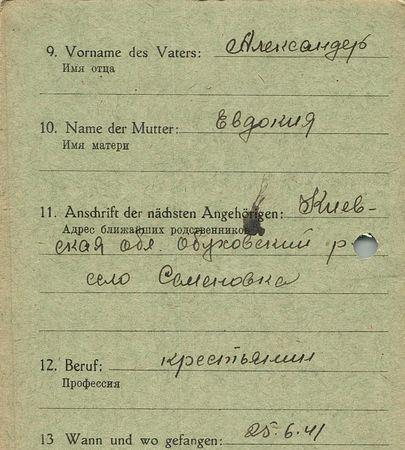 9. Vorname des Vaters: Александер
Имя отца
10. Name der Mutter: Евдокия
Имя матери
11. Anschrift der nächsten Angehörigen: Киев-
Адрес ближайших родственников
ская обл. Обуховский р-
село Семеновка
12. Beruf: крестьянин
Профессия
13 Wann und wo gefangen: 25.6.41